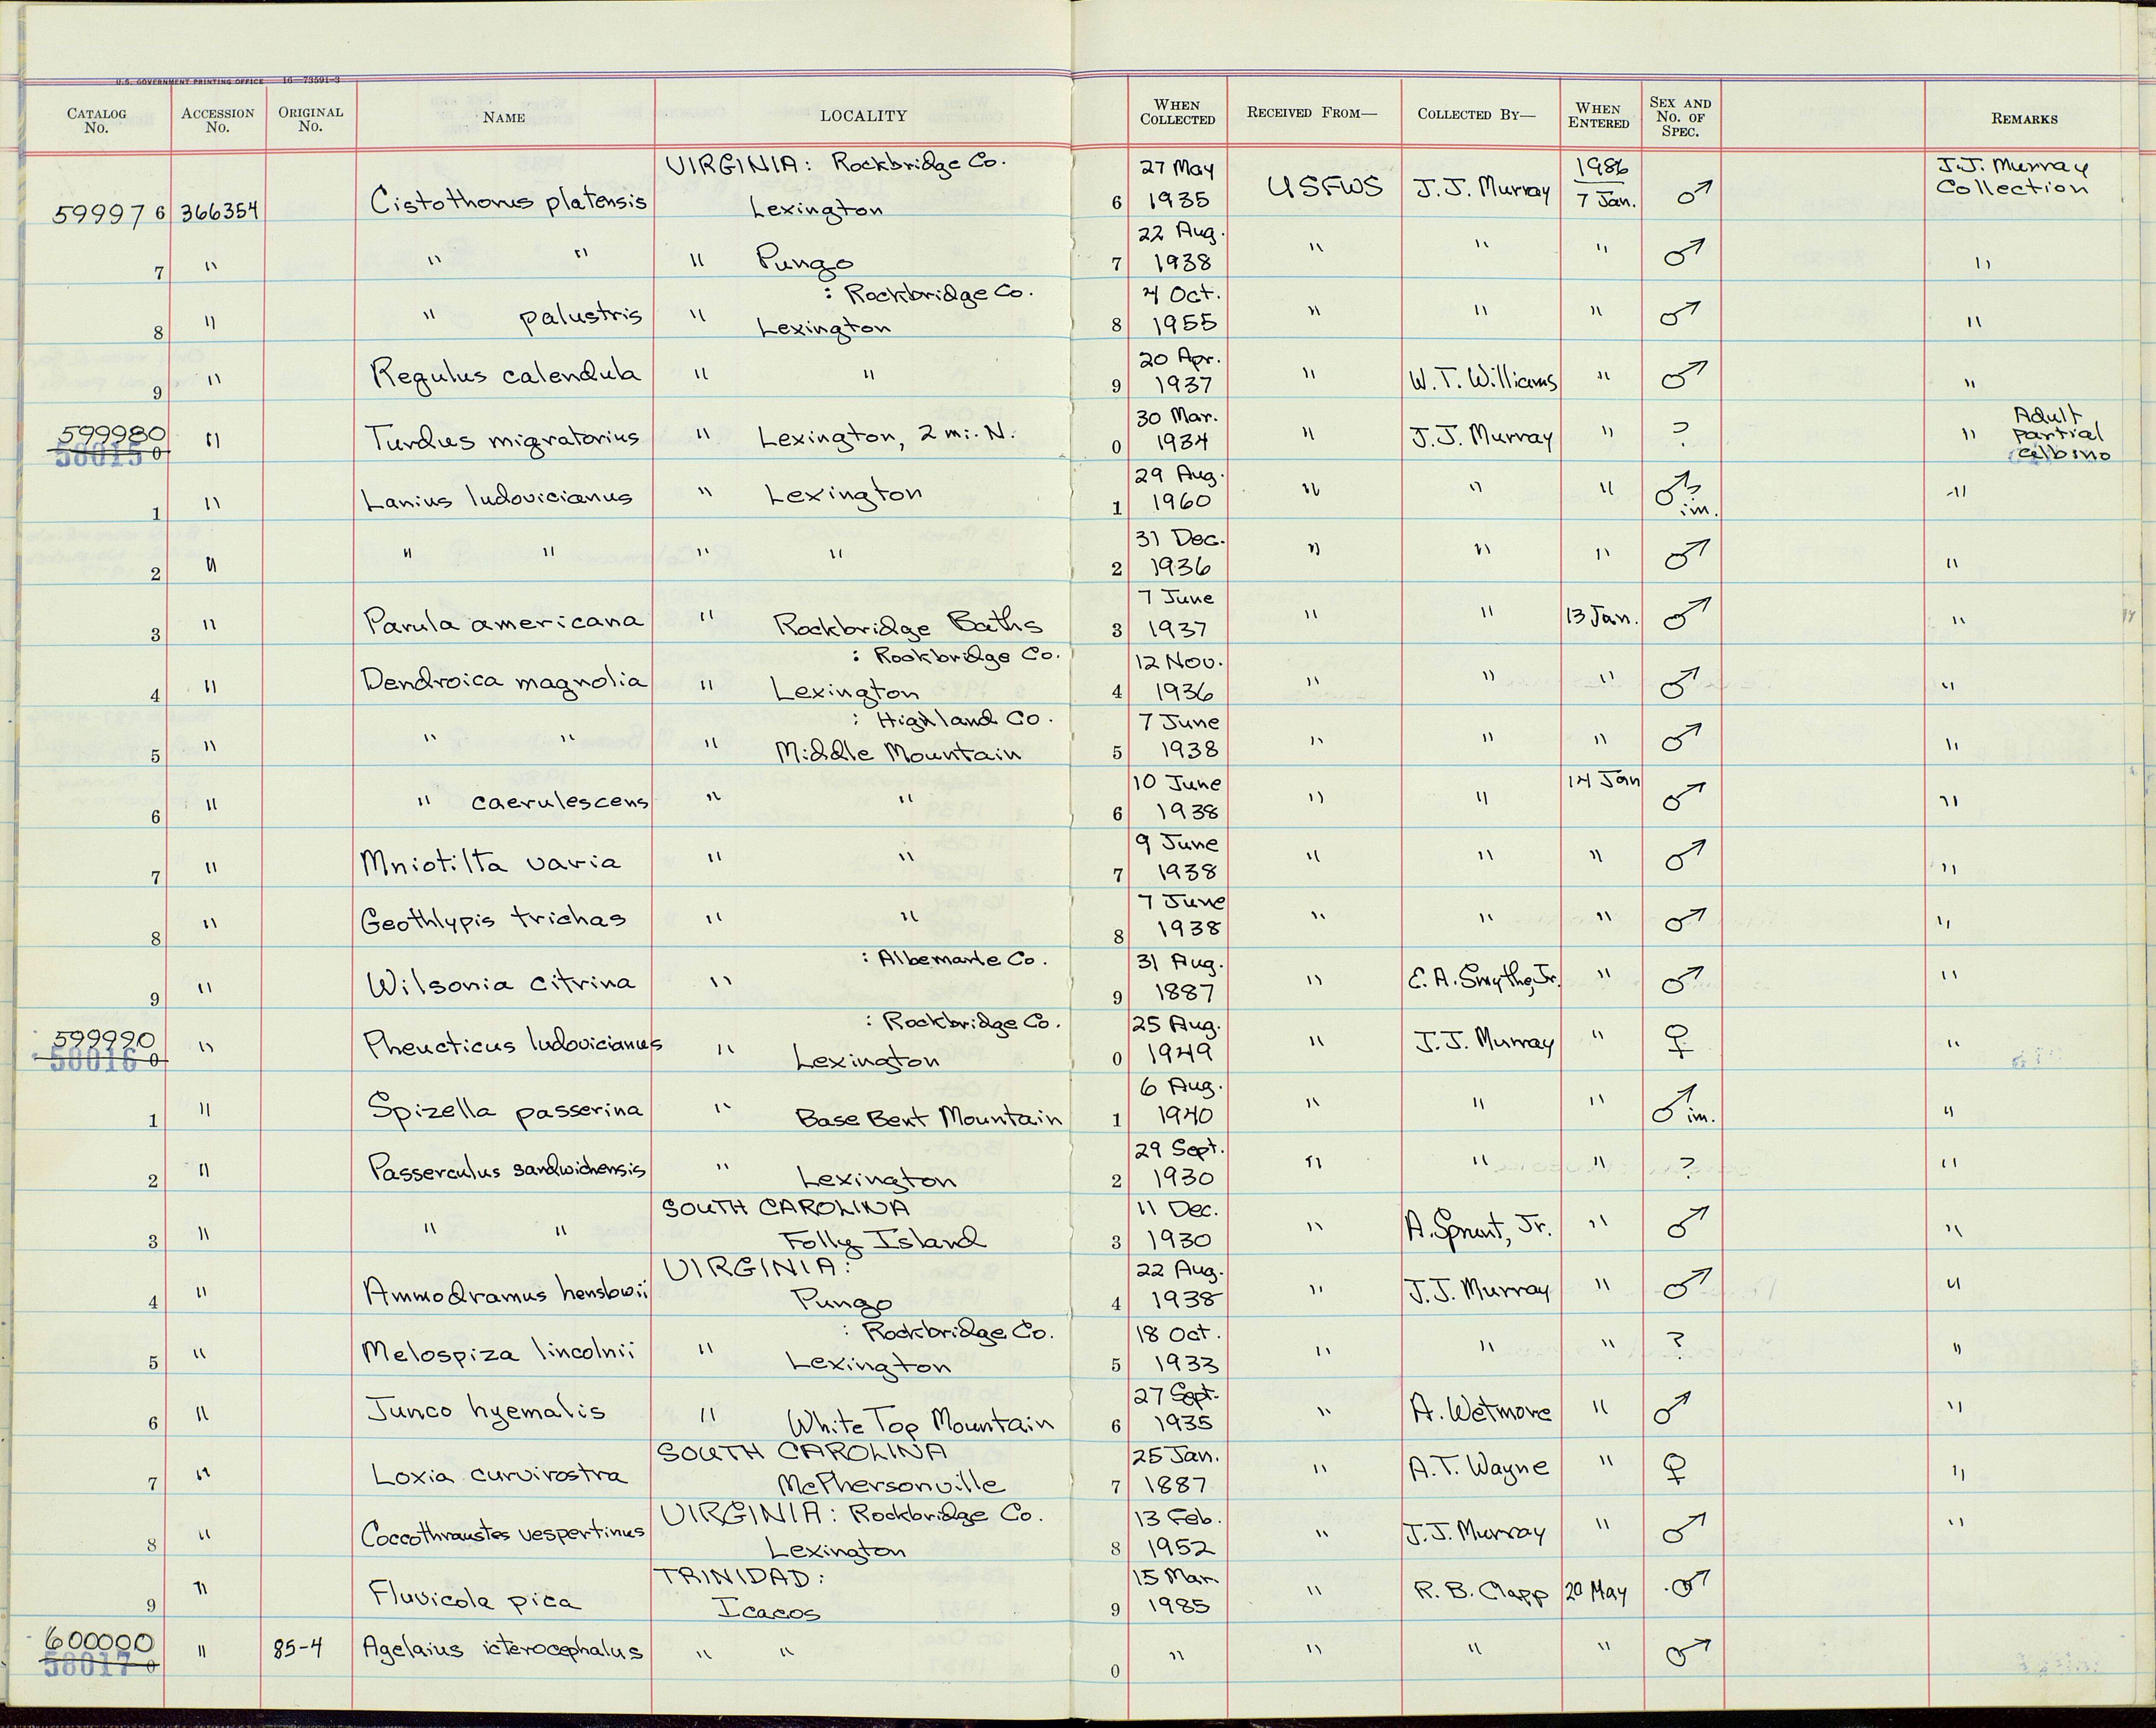 U.S. GOVERNMENT PRINTING OFFICE 16—73591-3
CATALOG No. ACCESSION No. ORIGINAL No. NAME LOCALITY WHEN COLLECTED RECEIVED FROM— COLLECTED BY— WHEN ENTERED SEX AND No. OF SPEC. REMARKS
599976 366354 Cistothorus platensis VIRGINIA: Rockbridge Co. Lexington 6 27 May 1935 USFWS J.J. Murray 1986 7 Jan. ♂ J.J. Murray Collection
7 " " " " Pungo 7 22 Aug. 1938 " " " ♂ "
8 " " palustris " : Rockbridge Co. Lexington 8 4 Oct. 1955 " " " ♂ "
9 " Regulus calendula " " 9 20 Apr. 1937 " W.T. Williams " ♂ "
599980 58015 0 " Turdus migratorius " Lexington, 2 mi. N. 0 30 Mar. 1934 " J.J. Murray " ? " Adult partial albino
1 " Lanius ludovicianus " Lexington 1 29 Aug. 1960 " " " ♂? im. "
2 " " " " " 2 31 Dec. 1936 " " " ♂ "
3 " Parula americana " Rockbridge Baths 3 7 June 1937 " " 13 Jan. ♂ "
4 " Dendroica magnolia " : Rockbridge Co. Lexington 4 12 Nov. 1936 " " " ♂ "
5 " " " " : Highland Co. Middle Mountain 5 7 June 1938 " " " ♂ "
6 " " caerulescens " " 6 10 June 1938 " " 14 Jan ♂ "
7 " Mniotilta varia " " 7 9 June 1938 " " " ♂ "
8 " Geothlypis trichas " " 8 7 June 1938 " " " ♂ "
9 " Wilsonia citrina " : Albemarle Co. 9 31 Aug. 1887 " E.A. Smythe, Jr. " ♂ "
599990 58016 0 " Pheucticus ludovicianus " : Rockbridge Co. Lexington 0 25 Aug. 1949 " J.J. Murray " ♀ "
1 " Spizella passerina " Base Bent Mountain 1 6 Aug. 1940 " " " ♂ im. "
2 " Passerculus sandwichensis " Lexington 2 29 Sept. 1930 " " " ? "
3 " " " SOUTH CAROLINA Folly Island 3 11 Dec. 1930 " A. Sprunt, Jr. " ♂ "
4 " Ammodramus henslowii VIRGINIA: Pungo 4 22 Aug. 1938 " J.J. Murray " ♂ "
5 " Melospiza lincolnii " : Rockbridge Co. Lexington 5 18 Oct. 1933 " " " ? "
6 " Junco hyemalis " White Top Mountain 6 27 Sept. 1935 " A. Wetmore " ♂ "
7 " Loxia curvirostra SOUTH CAROLINA McPhersonville 7 25 Jan. 1887 " A.T. Wayne " ♀ "
8 " Coccothraustes vespertinus VIRGINIA: Rockbridge Co. Lexington 8 13 Feb. 1952 " J.J. Murray " ♂ "
9 " Fluvicola pica TRINIDAD: Icacos 9 15 Mar. 1985 " R.B. Clapp 20 May ♂
600000 58017 0 " 85-4 Agelaius icterocephalus " " 0 " " " " ♂